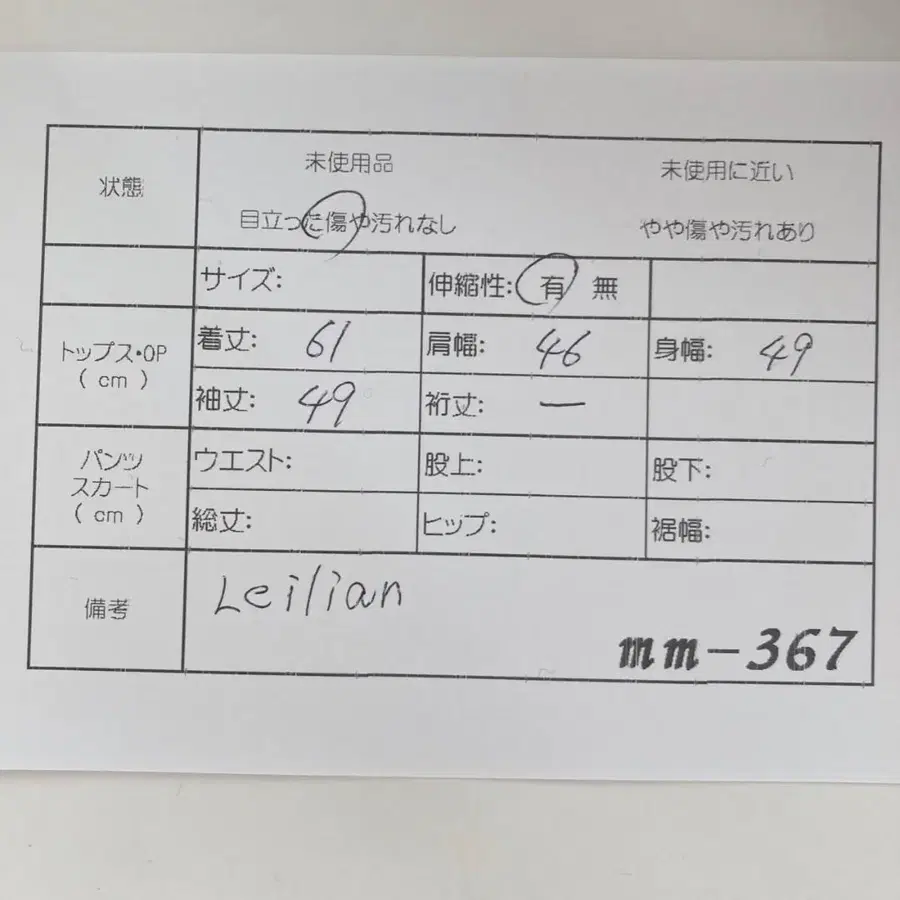 状態 未使用品 未使用に近い
目立った傷や汚れなし やや傷や汚れあり
サイズ: 伸縮性: 有 無
トップス・OP
( cm )
着丈: 61 肩幅: 46 身幅: 49
袖丈: 49 裄丈: ー
パンツ
スカート
( cm )
ウエスト: 股上: 股下:
総丈: ヒップ: 裾幅:
備考 Leilian
mm-367